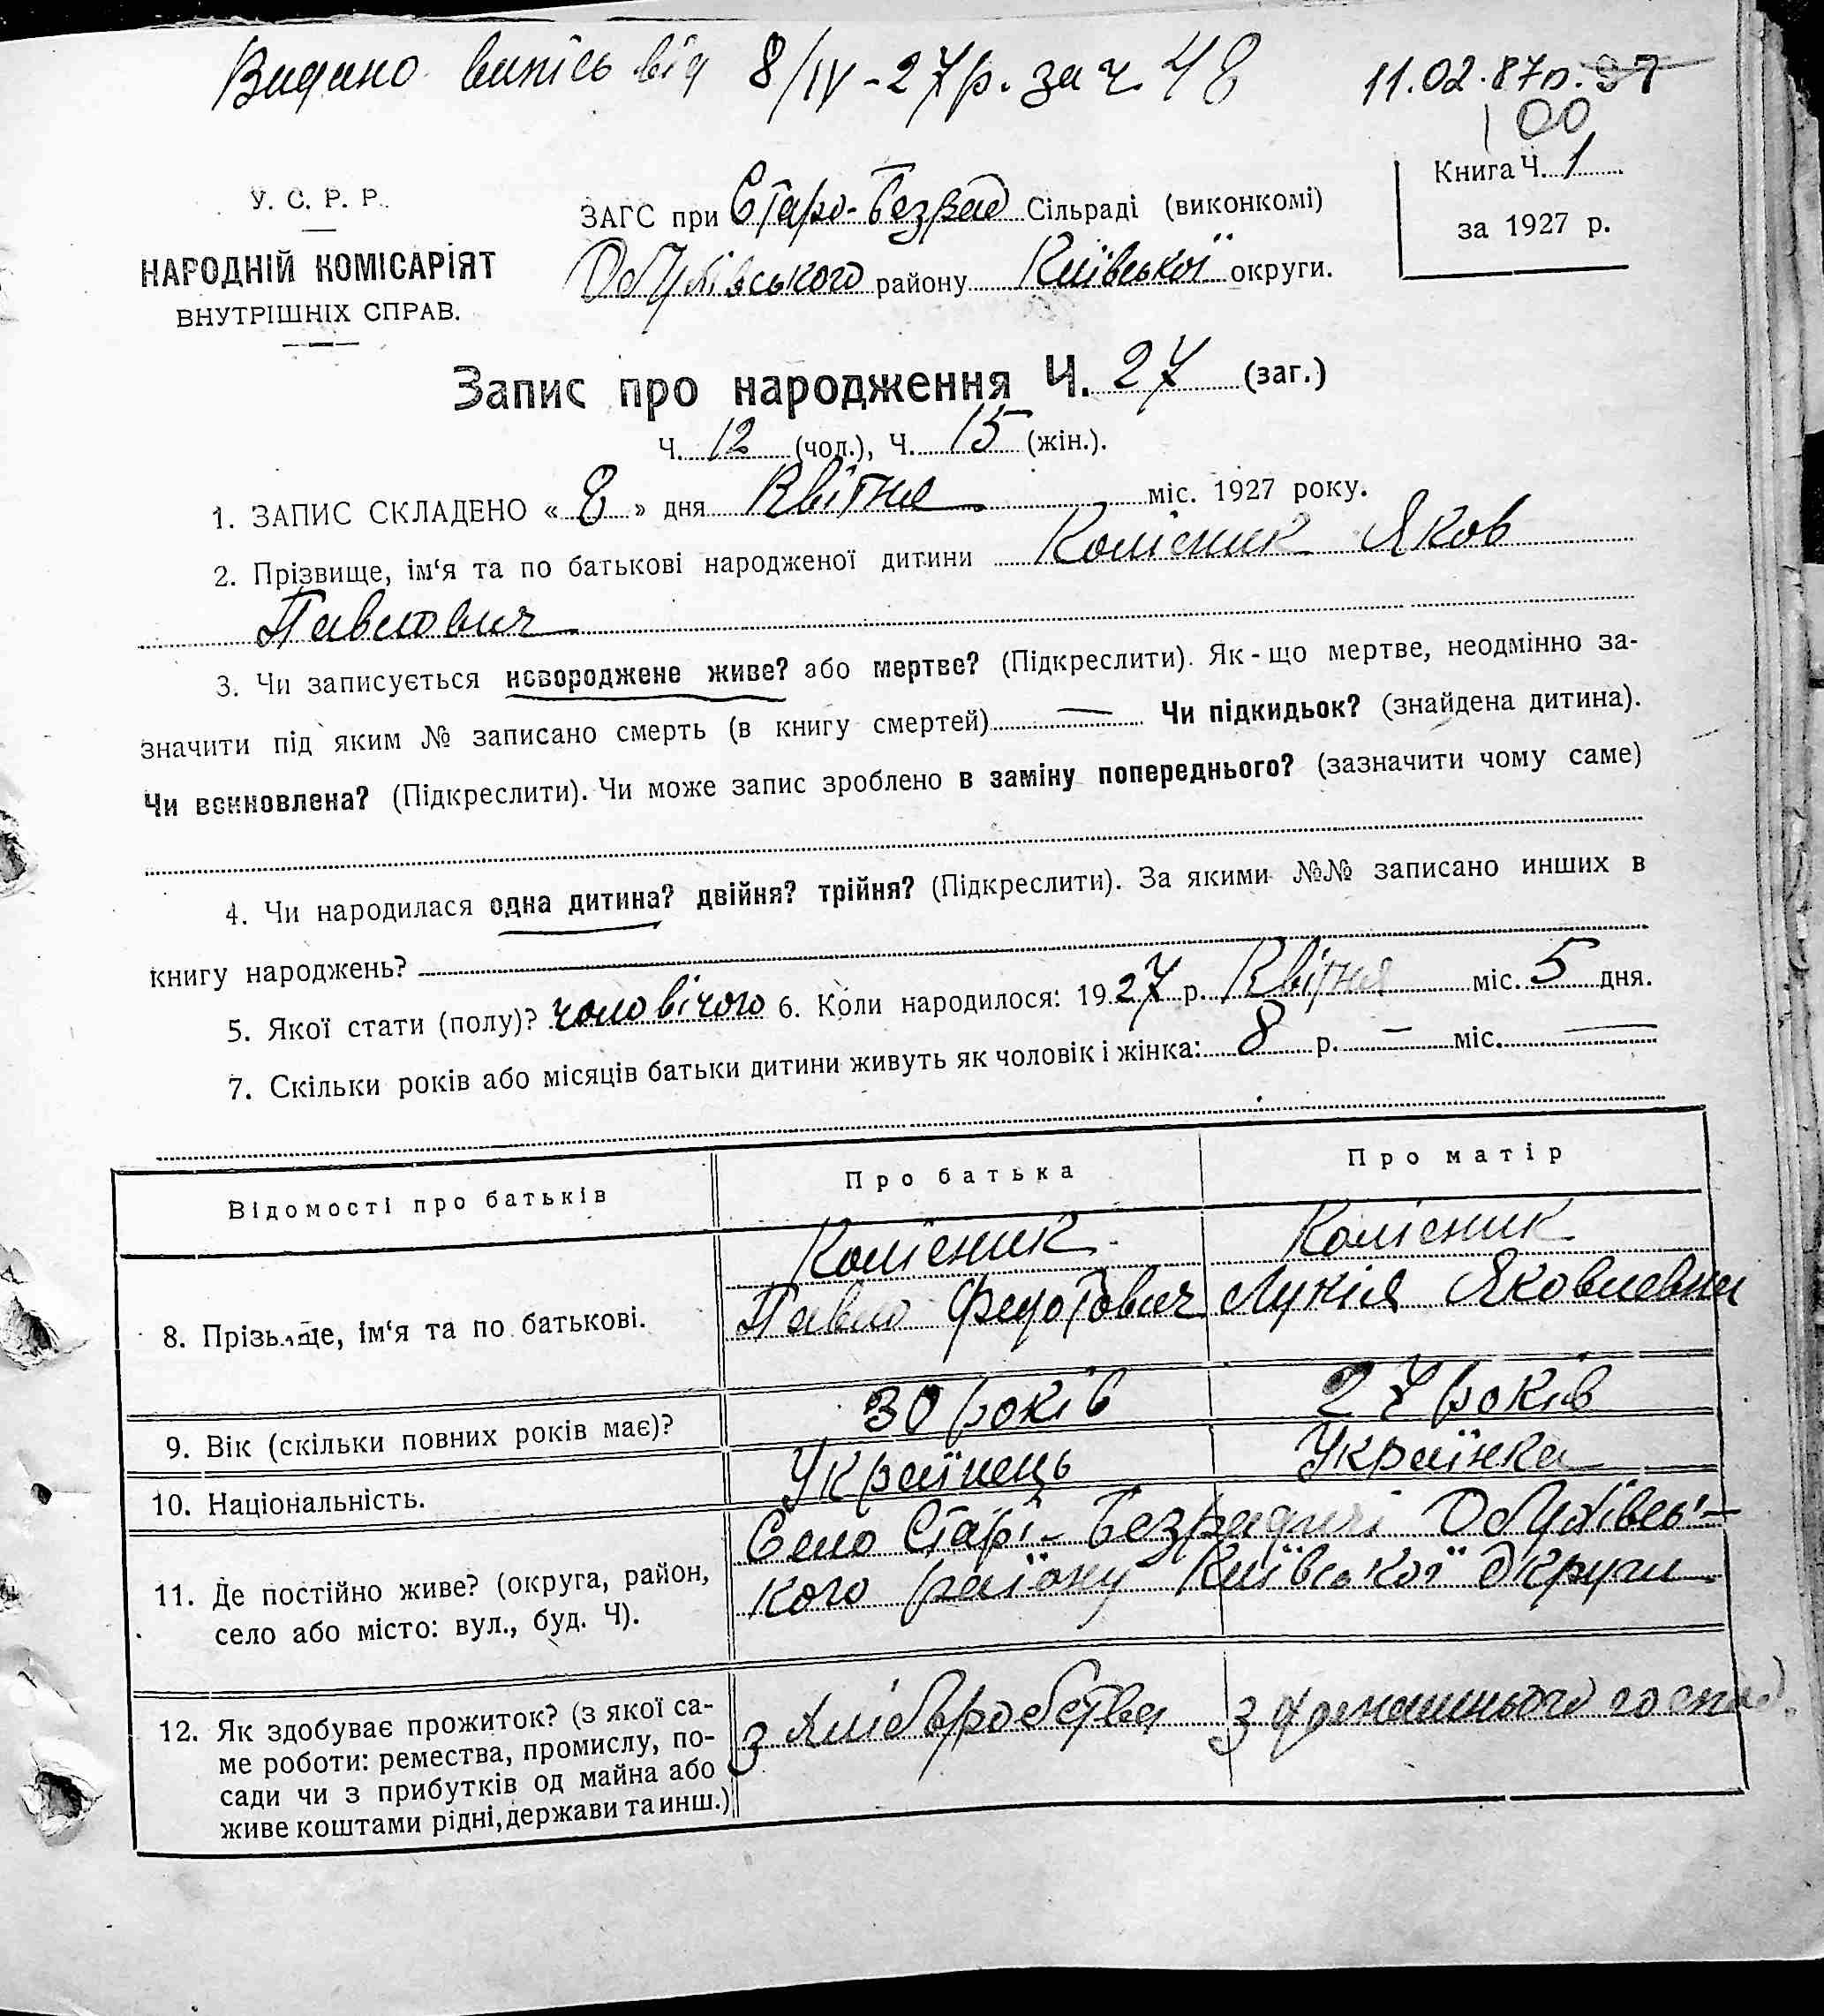 Видано випісь від 8/IV-27р. за ч. 48
11.02.87р. 97
100
У. С. Р. Р.
НАРОДНІЙ КОМІСАРІЯТ
ВНУТРІШНІХ СПРАВ.
ЗАГС при Старо-Безрад Сільраді (виконкомі)
Обухівського району Київської округи.
Книга Ч. 1
за 1927 р.
Запис про народження Ч. 27 (заг.)
Ч. 12 (чол.), Ч. 15 (жін.).
1. ЗАПИС СКЛАДЕНО « 8 » дня Квітня міс. 1927 року.
2. Прізвище, ім‘я та по батькові народженої дитини Колісник Яков
Павлович
3. Чи записується новороджене живе? або мертве? (Підкреслити). Як-що мертве, неодмінно за-
значити під яким № записано смерть (в книгу смертей) — Чи підкидьок? (знайдена дитина).
Чи всиновлена? (Підкреслити). Чи може запис зроблено в заміну попереднього? (зазначити чому саме)
4. Чи народилася одна дитина? двійня? трійня? (Підкреслити). За якими №№ записано инших в
книгу народжень?
5. Якої стати (полу)? чоловічого 6. Коли народилося: 1927 р. Квітня міс. 5 дня.
7. Скільки років або місяців батьки дитини живуть як чоловік і жінка: 8 р. — міс. —
Відомості про батьків
Про батька
Про матір
8. Прізвище, ім‘я та по батькові.
Колісник
Павло Федотович
Колісник
Лукія Яковлевна
9. Вік (скільки повних років має)?
30 років
27 років
10. Національність.
Українець
Українка
11. Де постійно живе? (округа, район,
село або місто: вул., буд. Ч).
Село Старі-Безрадичі Обухівсь-
кого району Київської округи
12. Як здобуває прожиток? (з якої са-
ме роботи: ремества, промислу, по-
сади чи з прибутків од майна або
живе коштами рідні, держави та инш.)
з хліборобства
з домашнього госпо.